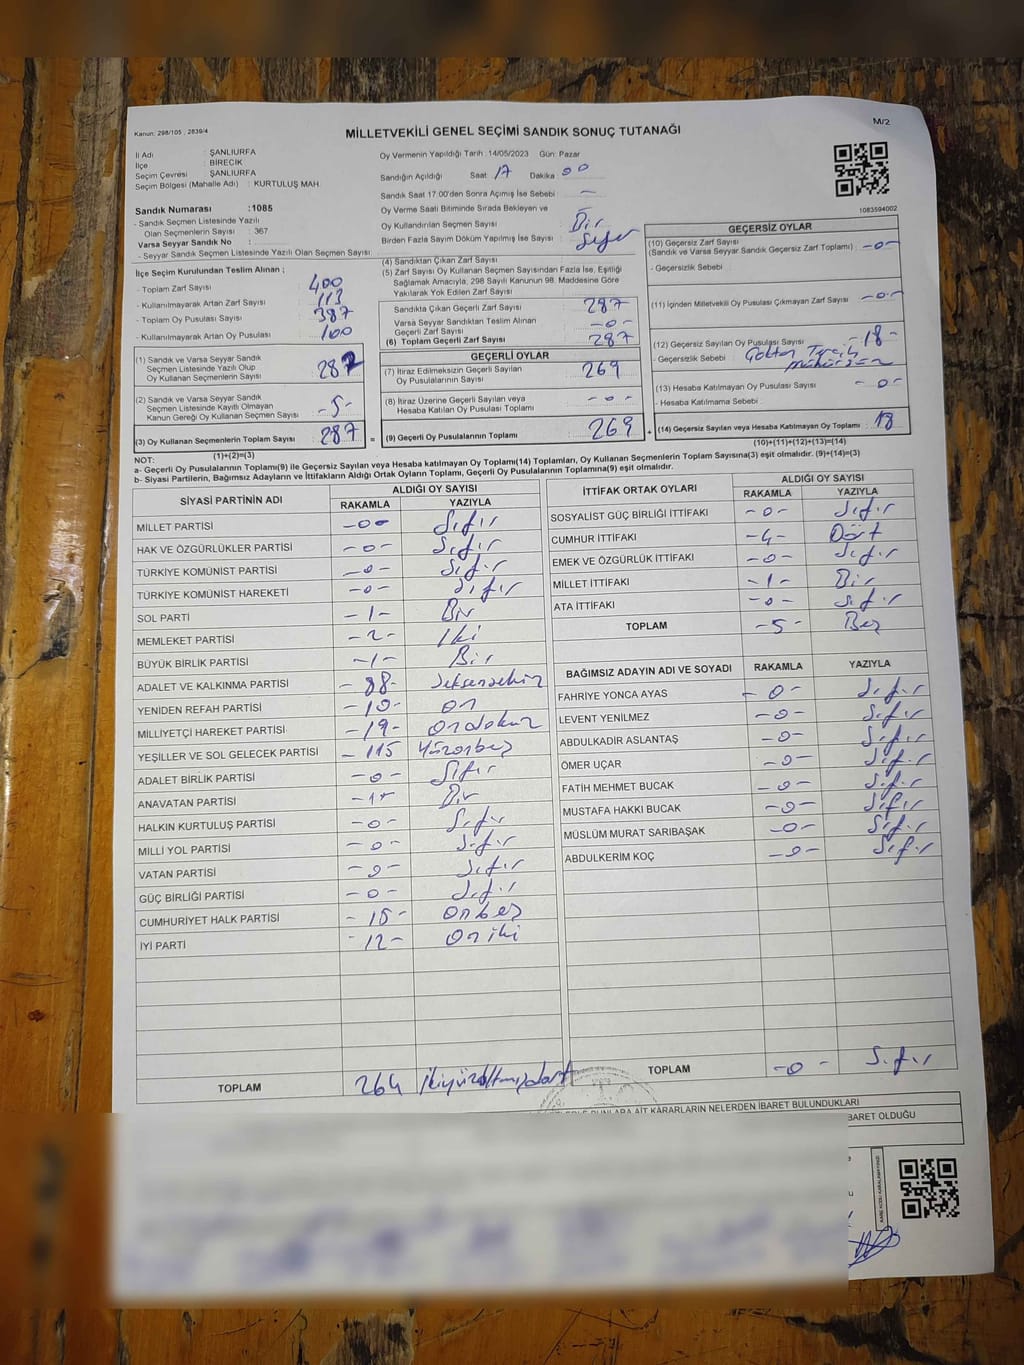 Kanun: 298/105 , 2839/4
MİLLETVEKİLİ GENEL SEÇİMİ SANDIK SONUÇ TUTANAĞI
M/2
İl Adı : ŞANLIURFA
İlçe : BİRECİK
Seçim Çevresi : ŞANLIURFA
Seçim Bölgesi (Mahalle Adı) : KURTULUŞ MAH.
Sandık Numarası :1085
- Sandık Seçmen Listesinde Yazılı
Olan Seçmenlerin Sayısı : 367
Varsa Seyyar Sandık No :
- Seyyar Sandık Seçmen Listesinde Yazılı Olan Seçmen Sayısı:
Oy Vermenin Yapıldığı Tarih :14/05/2023 Gün: Pazar
Sandığın Açıldığı Saat 17 Dakika 00
Sandık Saat 17.00'den Sonra Açımış İse Sebebi : —
Oy Verme Saati Bitiminde Sırada Bekleyen ve
Oy Kullandırılan Seçmen Sayısı : Bir
Birden Fazla Sayım Döküm Yapılmış İse Sayısı : Sıfır
1083594002
İlçe Seçim Kurulundan Teslim Alınan ;
- Toplam Zarf Sayısı : 400
- Kullanılmayarak Artan Zarf Sayısı : 113
- Toplam Oy Pusulası Sayısı : 387
- Kullanılmayarak Artan Oy Pusulası : 100
(1) Sandık ve Varsa Seyyar Sandık
Seçmen Listesinde Yazılı Olup
Oy Kullanan Seçmenlerin Sayısı : 282
(2) Sandık ve Varsa Seyyar Sandık
Seçmen Listesinde Kayıtlı Olmayan
Kanun Gereği Oy Kullanan Seçmen Sayısı : -5-
(3) Oy Kullanan Seçmenlerin Toplam Sayısı : 287
(1)+(2)=(3)
(4) Sandıktan Çıkan Zarf Sayısı :
(5) Zarf Sayısı Oy Kullanan Seçmen Sayısından Fazla İse, Eşitliği
Sağlamak Amacıyla, 298 Sayılı Kanunun 98. Maddesine Göre
Yakılarak Yok Edilen Zarf Sayısı :
Sandıkta Çıkan Geçerli Zarf Sayısı : 287
Varsa Seyyar Sandıktan Teslim Alınan
Geçerli Zarf Sayısı : -0-
(6) Toplam Geçerli Zarf Sayısı : 287
GEÇERLİ OYLAR
(7) İtiraz Edilmeksizin Geçerli Sayılan
Oy Pusulalarının Sayısı : 269
(8) İtiraz Üzerine Geçerli Sayılan veya
Hesaba Katılan Oy Pusulası Toplamı : -0-
= (9) Geçerli Oy Pusulalarının Toplamı : 269 +
GEÇERSİZ OYLAR
(10) Geçersiz Zarf Sayısı
(Sandık ve Varsa Seyyar Sandık Geçersiz Zarf Toplamı) : -0-
- Geçersizlik Sebebi :
(11) İçinden Milletvekili Oy Pusulası Çıkmayan Zarf Sayısı : -0-
(12) Geçersiz Sayılan Oy Pusulası Sayısı : -18-
- Geçersizlik Sebebi :
(13) Hesaba Katılmayan Oy Pusulası Sayısı : -0-
- Hesaba Katılmama Sebebi :
(14) Geçersiz Sayılan veya Hesaba Katılmayan Oy Toplamı : 18
(10)+(11)+(12)+(13)=(14)
NOT:
a- Geçerli Oy Pusulaların Toplamı(9) ile Geçersiz Sayılan veya Hesaba katılmayan Oy Toplamı(14) Toplamları, Oy Kullanan Seçmenlerin Toplam Sayısına(3) eşit olmalıdır. (9)+(14)=(3)
b- Siyasi Partilerin, Bağımsız Adayların ve İttifakların Aldığı Ortak Oyların Toplamı, Geçerli Oy Pusulalarının Toplamına(9) eşit olmalıdır.
SİYASİ PARTİNİN ADI ALDIĞI OY SAYISI
RAKAMLA YAZIYLA
MİLLET PARTİSİ -0- Sıfır
HAK VE ÖZGÜRLÜKLER PARTİSİ -0- Sıfır
TÜRKİYE KOMÜNİST PARTİSİ -0- Sıfır
TÜRKİYE KOMÜNİST HAREKETİ -0- Sıfır
SOL PARTİ -1- Bir
MEMLEKET PARTİSİ -2- İki
BÜYÜK BİRLİK PARTİSİ -1- Bir
ADALET VE KALKINMA PARTİSİ -88- Seksensekiz
YENİDEN REFAH PARTİSİ -10- On
MİLLİYETÇİ HAREKET PARTİSİ -19- Ondokuz
YEŞİLLER VE SOL GELECEK PARTİSİ -115 Yüzonbeş
ADALET BİRLİK PARTİSİ -0- Sıfır
ANAVATAN PARTİSİ -1- Bir
HALKIN KURTULUŞ PARTİSİ -0- Sıfır
MİLLİ YOL PARTİSİ -0- Sıfır
VATAN PARTİSİ -0- Sıfır
GÜÇ BİRLİĞİ PARTİSİ -0- Sıfır
CUMHURİYET HALK PARTİSİ -15- Onbeş
İYİ PARTİ -12- Oniki
TOPLAM 264 İkiyüzaltmışdört
İTTİFAK ORTAK OYLARI ALDIĞI OY SAYISI
RAKAMLA YAZIYLA
SOSYALİST GÜÇ BİRLİĞİ İTTİFAKI -0- Sıfır
CUMHUR İTTİFAKI -4- Dört
EMEK VE ÖZGÜRLÜK İTTİFAKI -0- Sıfır
MİLLET İTTİFAKI -1- Bir
ATA İTTİFAKI -0- Sıfır
TOPLAM -5- Beş
BAĞIMSIZ ADAYIN ADI VE SOYADI RAKAMLA YAZIYLA
FAHRİYE YONCA AYAS -0- Sıfır
LEVENT YENİLMEZ -0- Sıfır
ABDULKADİR ASLANTAŞ -0- Sıfır
ÖMER UÇAR -0- Sıfır
FATİH MEHMET BUCAK -0- Sıfır
MUSTAFA HAKKI BUCAK -0- Sıfır
MÜSLÜM MURAT SARIBAŞAK -0- Sıfır
ABDULKERİM KOÇ -0- Sıfır
TOPLAM -0- Sıfır
BUNLARA AİT KARARLARIN NELERDEN İBARET BULUNDUKLARI
İBARET OLDUĞU